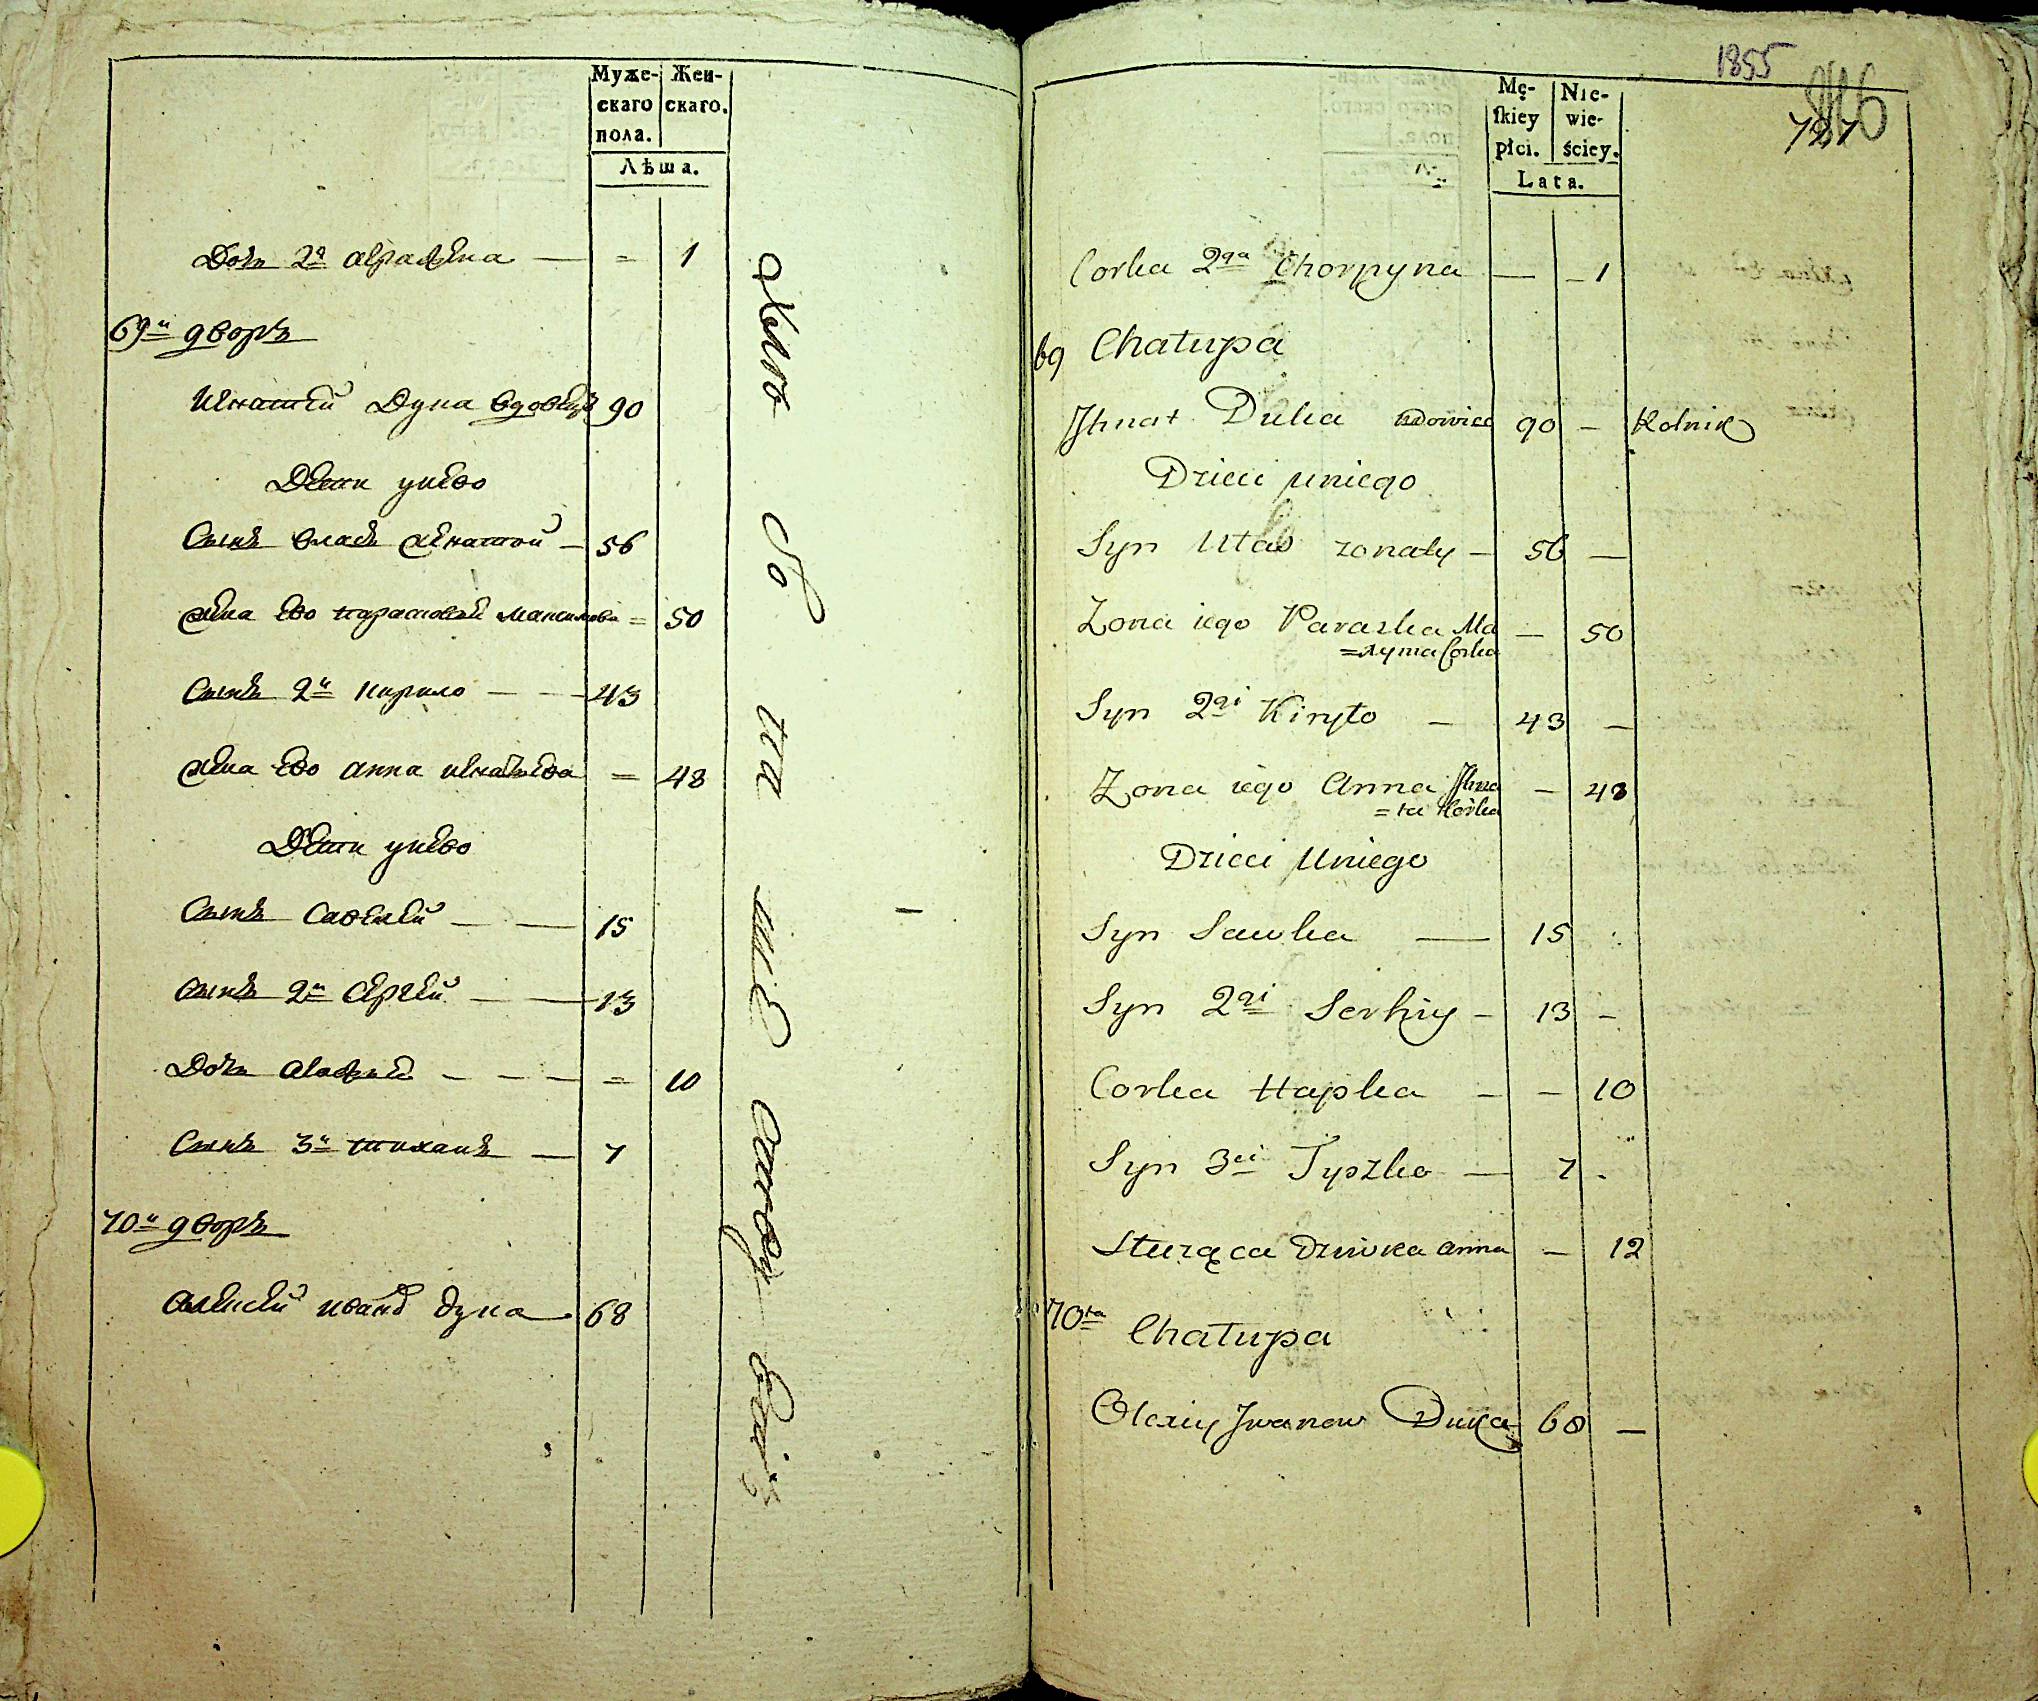 Муже-
скаго
пола.
Жен-
скаго.
Лѣта.
Дочь 2я
1
69й дворъ
Игнатей Дука вдовецъ 90
Дети унево
Сынъ власъ 56
жена ево Максимова = 50
Сынъ 2й Кирило 43
жена ево анна игнатьева = 48
Дети унево
Сынъ Савелей 15
Сынъ 2й Сергей 13
Дочь = 10
Сынъ 3й тихонъ 7
70й дворъ
Алексей иванов дука 68
1855
727
Mę-
skiey
płci.
Nie-
wie-
ściey.
Lata.
Corka 2ga Chorpyna — – 1
69 Chałupa
Ihnat Duka wdowiec 90 – Rolnik
Dzieci uniego
Syn Ułas zonaty – 56 —
Zona iego Paraska Ma — 50
=xyma Corka
Syn 2gi Kiryło – 43 –
Zona iego Anna Ihna – 48
=ta Corka
Dzieci Uniego
Syn Sawka — 15
Syn 2gi Serhiy – 13 –
Corka Hapka – – 10
Syn 3ci Tyszko — 7 -
Służąca Dziwka anna – 12
70ta Chałupa
Olexiy Iwanow Duka 68 –